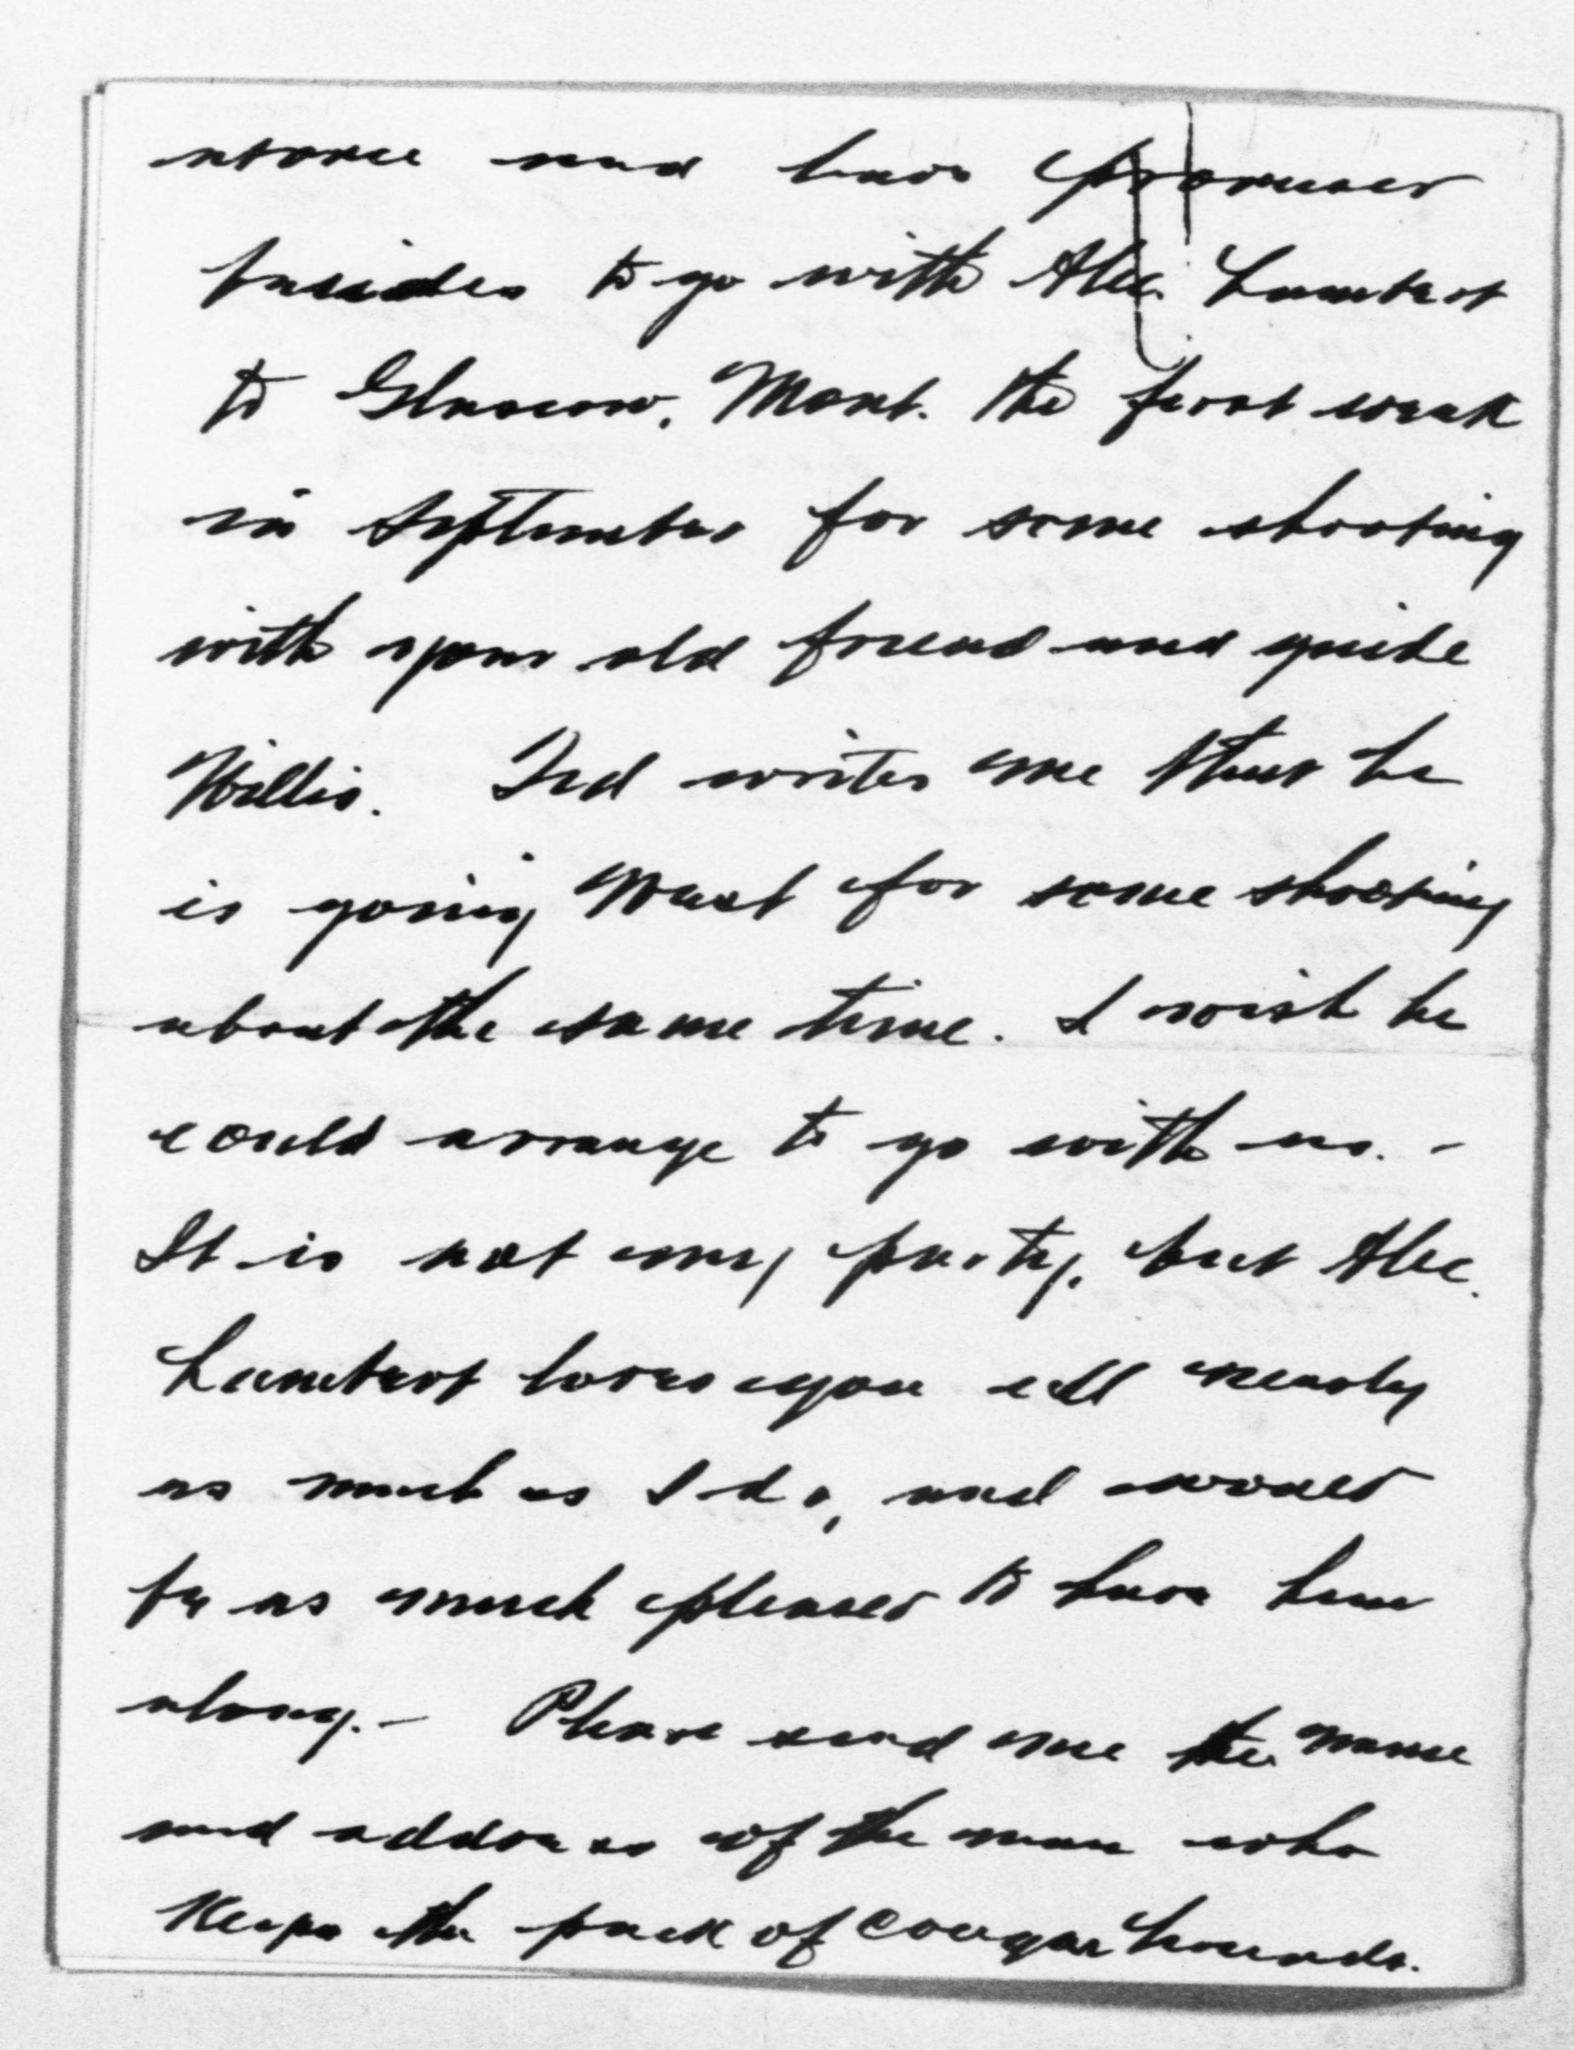 at once and have promised
besides to go with Alec. Lambert
to Glascow, Mont. the first week
in September for some shooting
with your old friend and guide
Willis. Ted writes me that he
is going West for some shooting
about the same time. I wish he
could arrange to go with us. -
It is not my party, but Alec.
Lambert loves you all nearly
as much as I do, and would
be as much pleased to have him
along. - Please send me the name
and address of the man who
keeps the pack of cougar hounds.